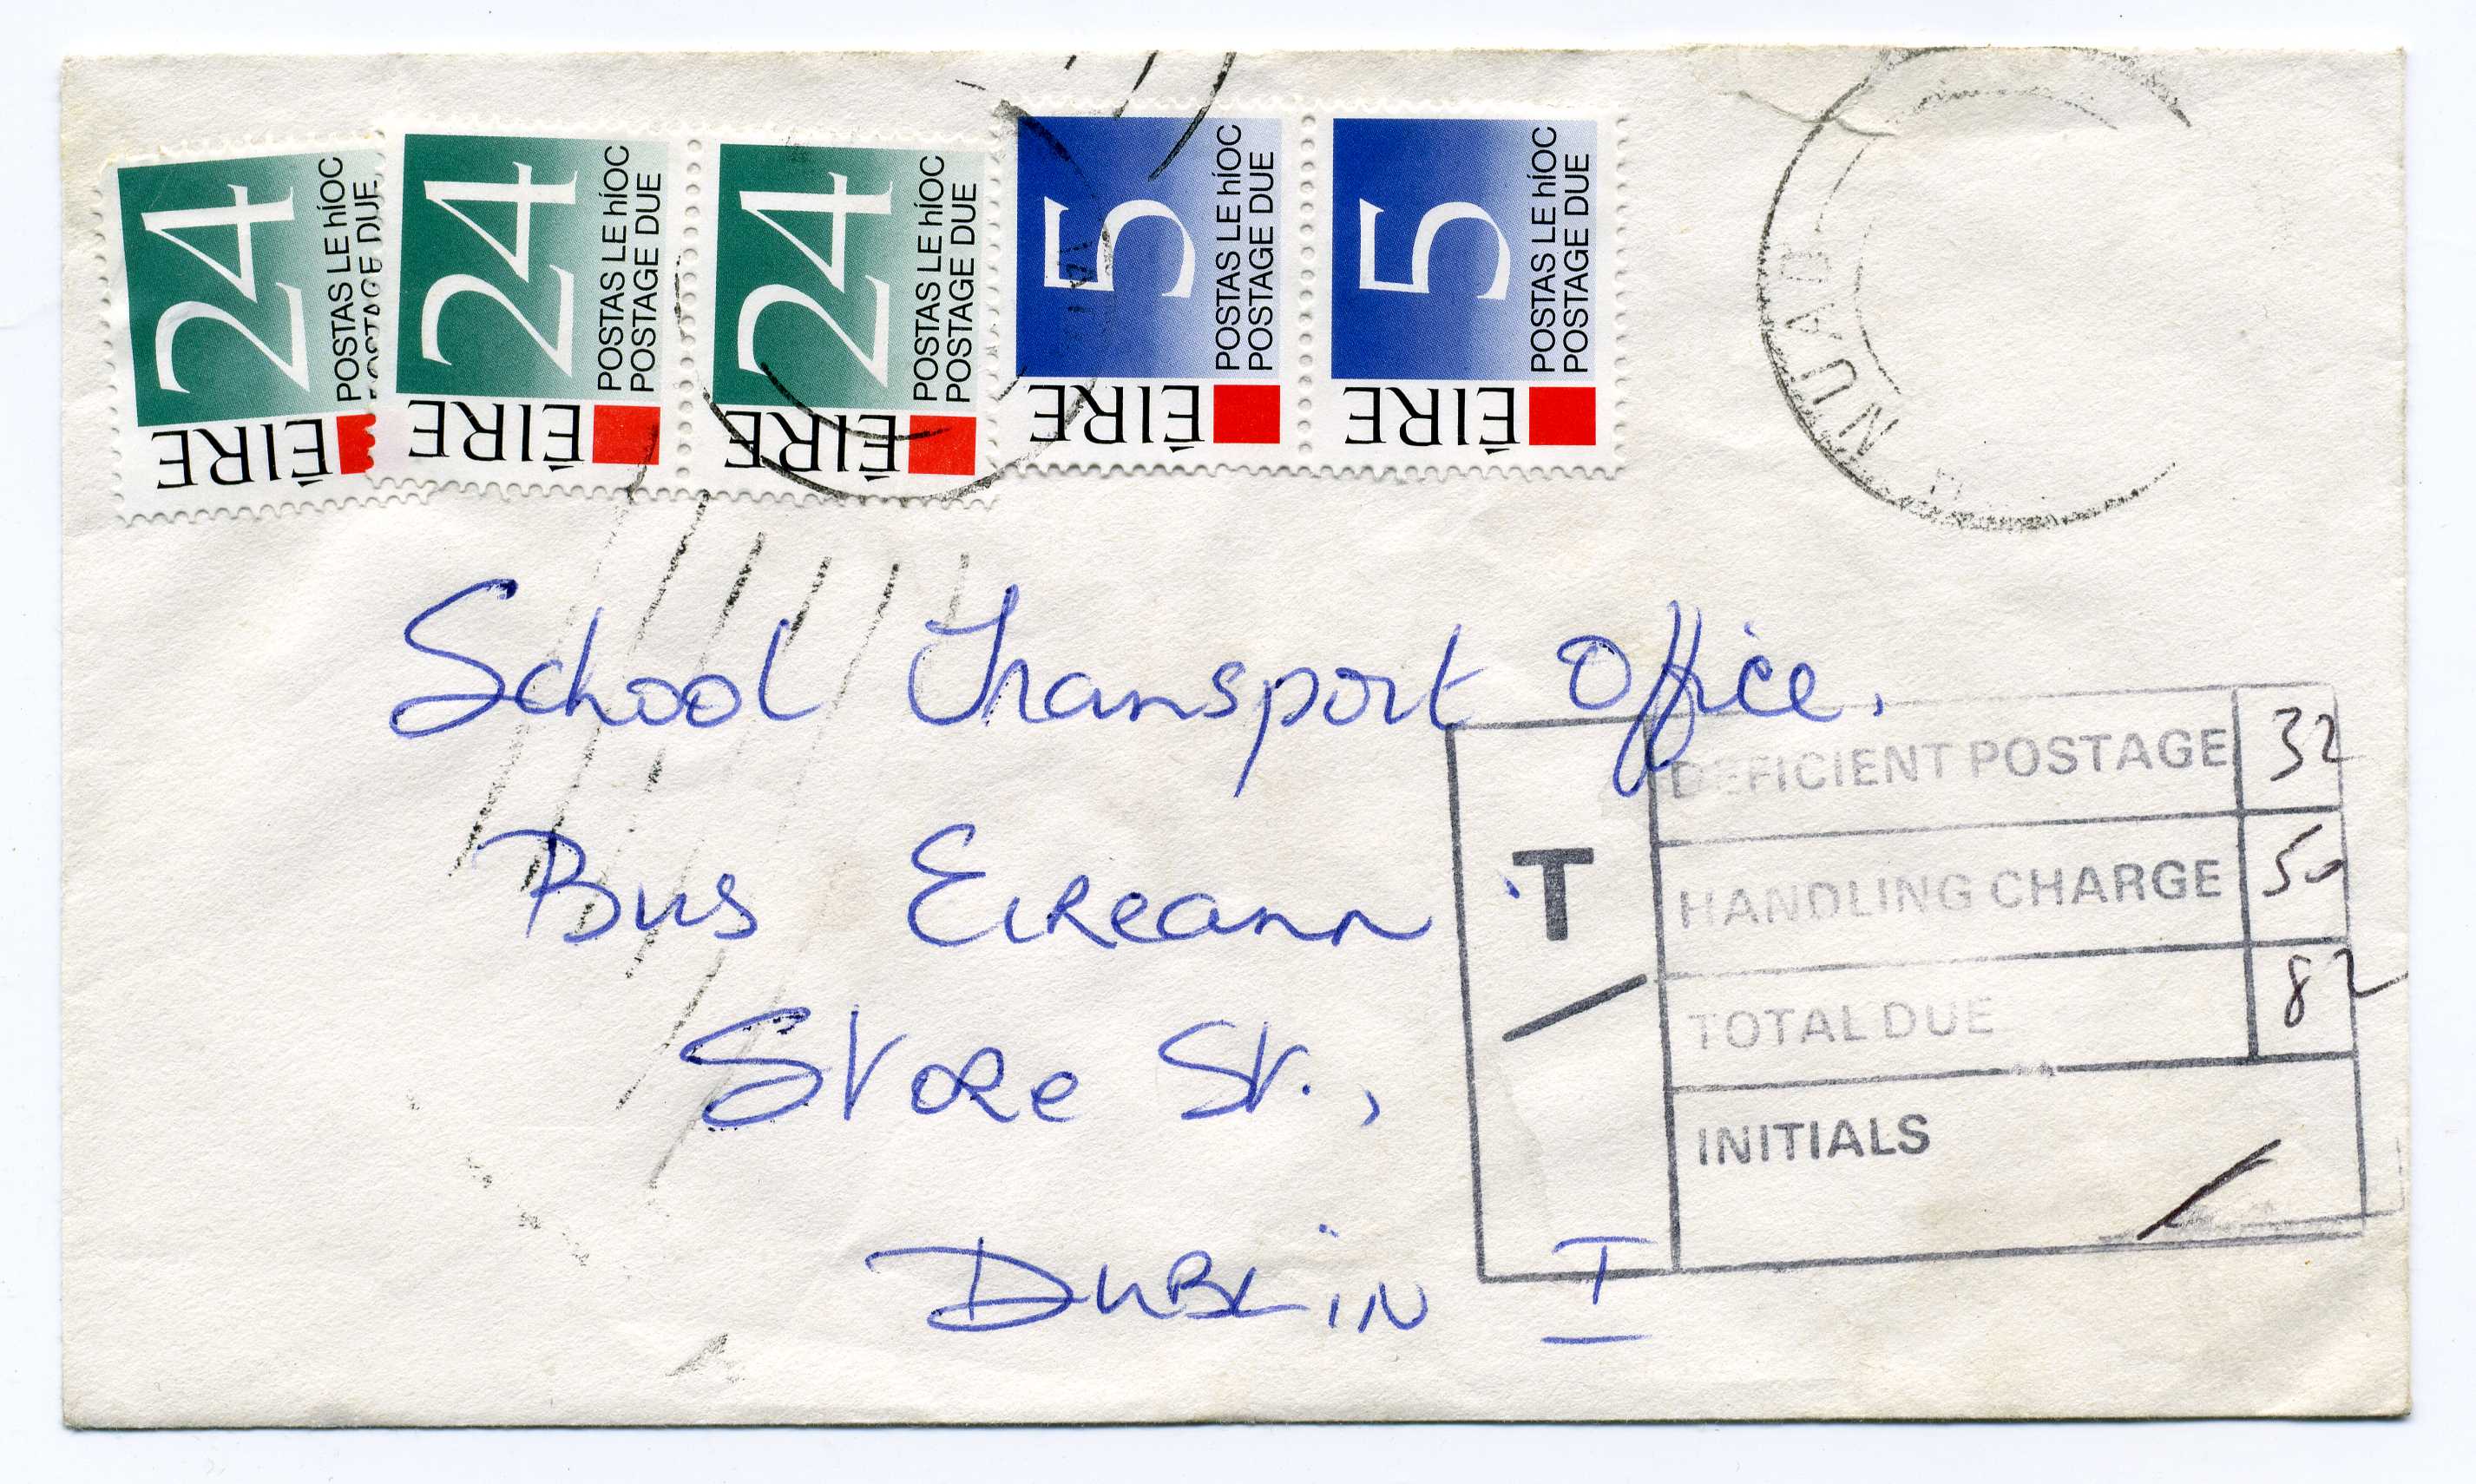 24
POSTAS LE hÍOC
POSTAGE DUE
ÉIRE
24
POSTAS LE hÍOC
POSTAGE DUE
ÉIRE
24
POSTAS LE hÍOC
POSTAGE DUE
ÉIRE
5
POSTAS LE hÍOC
POSTAGE DUE
ÉIRE
5
POSTAS LE hÍOC
POSTAGE DUE
ÉIRE
School Transport Office,
Bus EIReann
StoRe St.,
DuBLiN 1
T
DEFICIENT POSTAGE 32
HANDLING CHARGE 50
TOTAL DUE 82
INITIALS